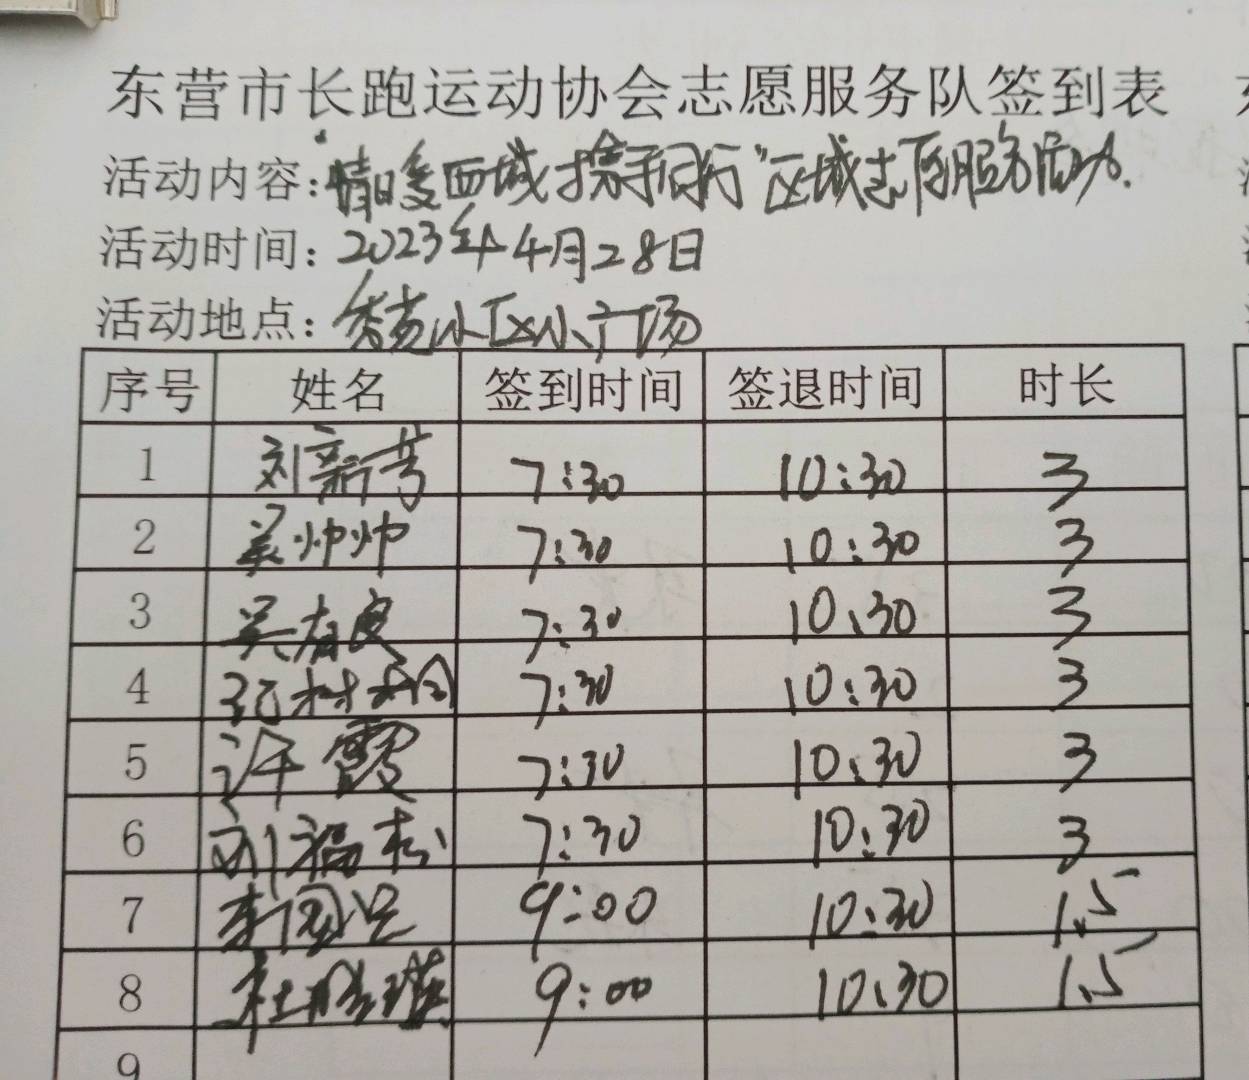 东营市长跑运动协会志愿服务队签到表
活动内容:“情暖西城 携手同行”区域志愿服务活动.
活动时间:2023年4月28日
活动地点:秀苑小区小广场
序号 姓名 签到时间 签退时间 时长
1 刘新芳 7:30 10:30 3
2 吴帅帅 7:30 10:30 3
3 吴有良 7:30 10:30 3
4 纪树桐 7:30 10:30 3
5 许霞 7:30 10:30 3
6 刘福松 7:30 10:30 3
7 李国 9:00 10:30 1.5
8 杜 9:00 10:30 1.5
9